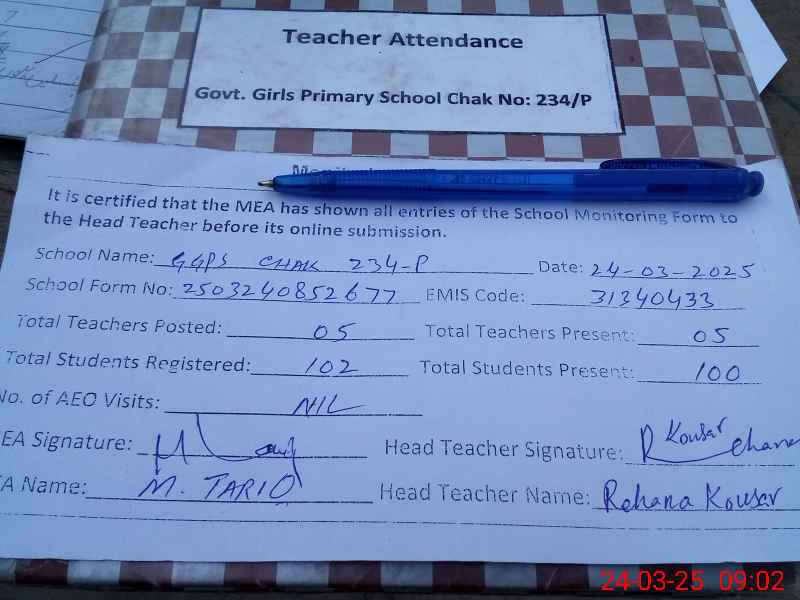 Teacher Attendance
Govt. Girls Primary School Chak No: 234/P
It is certified that the MEA has shown all entries of the School Monitoring Form to
the Head Teacher before its online submission.
School Name: GGPS CHAK 234-P Date: 24-03-2025
School Form No: 2503240852677 EMIS Code: 31340433
Total Teachers Posted: 05 Total Teachers Present: 05
Total Students Registered: 102 Total Students Present: 100
No. of AEO Visits: NIL
EA Signature: Head Teacher Signature: R Kousar ehana
A Name: M. TARIQ Head Teacher Name: Rehana Kousar
24-03-25 09:02